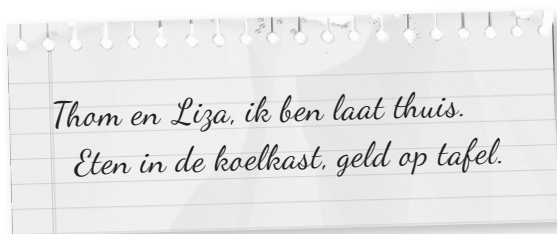 Thom en Liza, ik ben laat thuis.
Eten in de koelkast, geld op tafel.